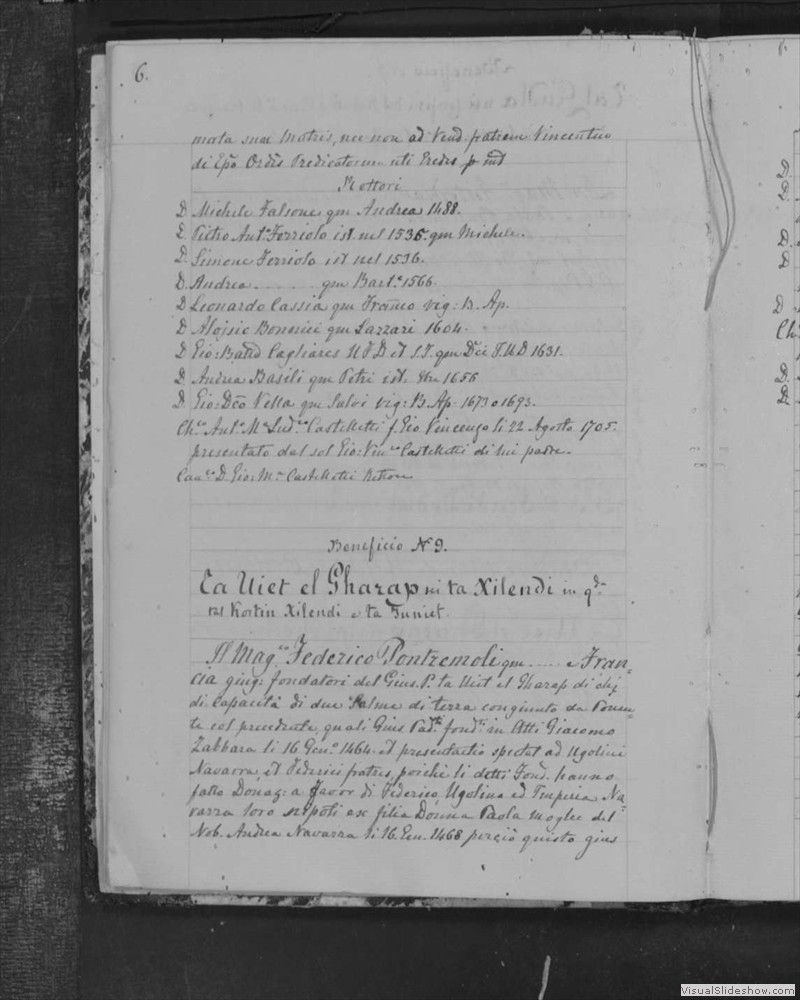 6.
morta sua Matris, nec non ad Vend. fratrem Vincentiu
di Epo Ordis Predicatorum uti Eredes p md
Rettori
D. Michele Falsone qm Andrea 1488.
D. Pietro Anto Ferriolo ist. nel 1535. qm Michele.
D. Simone Ferriolo ist nel 1536.
D. Andrea ........ qm Barto 1566.
D. Leonardo Cassia qm Franco vig: B. Ap.
D. Alojsio Bonnici qm Lazzari 1604.
D. Gio: Batta Cagliares U J D et S.T. qm Dci J.U.D 1631.
D. Andrea Basili qm Petri ist. 1656
D. Gio: Dco Vella qm Salvi vig: B. Ap. 1673 o 1693.
Chco Anto Ma Ludco Castelletti f. Gio Vincenzo li 22 Agosto 1705.
presentato dal sol Gio: Vinco Castelletti di lui padre.
Canco D. Gio: Ma Castelletti Rettore
Beneficio No 9.
Ta Uiet el Gharap ni ta Xilendi in qda
tal Kortin Xilendi e ta Funiet.
Il Magco Federico Pontremoli qm ...... e Fran=
cia giug: fondatori del Gius. P. ta Uiet el Gharap di
di capacità di due Salme di terra congiunto da Ponen=
te col precedente, quali Gius Padto fondo in Atti Giacomo
Zabbara li 16 Geno 1464. et presentatio spectat ad Ugolini
Navarra, et Federici fratres, poichè li detti Fond. hanno
fatto Donaz: a favor di Federico, Ugolino ed Imperia Na=
varra loro nepoti ex filia Donna Paola moglie del
Nob. Andrea Navarra li 16. Gen. 1468 perciò questo gius
Ch.
VisualSlideshow.com